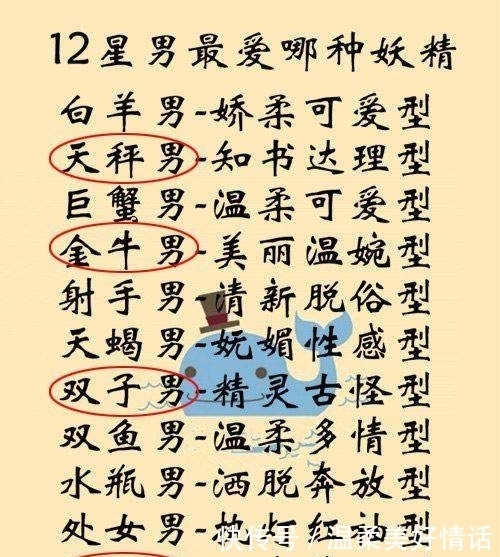 12星男最爱哪种妖精
白羊男-娇柔可爱型
天秤男-知书达理型
巨蟹男-温柔可爱型
金牛男-美丽温婉型
射手男-清新脱俗型
天蝎男-妩媚性感型
双子男-精灵古怪型
双鱼男-温柔多情型
水瓶男-洒脱奔放型
处女男-
快传号/温柔美好情话